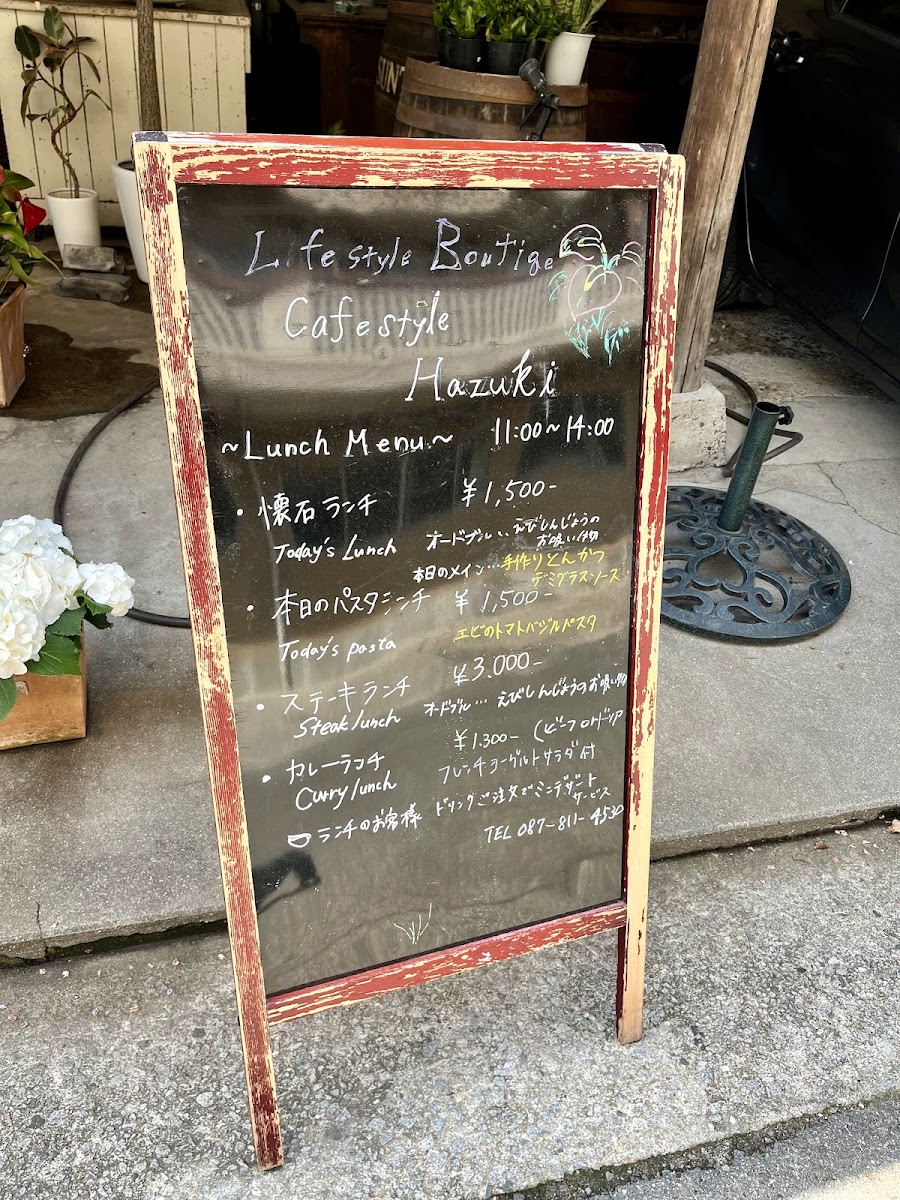 Lifestyle Boutige
Cafe style
Hazuki
~Lunch Menu~ 11:00~14:00
・懐石ランチ ¥1,500-
Today's Lunch オードブル… えびしんじょうの
お吸い物
本日のメイン…手作りとんかつ
デミグラスソース
・本日のパスタランチ ¥1,500-
Today's pasta エビのトマトバジルパスタ
・ステーキランチ ¥3,000-
Steak lunch オードブル… えびしんじょうのお吸い物
・カレーランチ ¥1,300- (ビーフ or ドリア
Curry lunch フレンチヨーグルトサラダ付
ランチのお客様 ドリンクご注文でミニデザート
サービス
TEL 087-811-4530